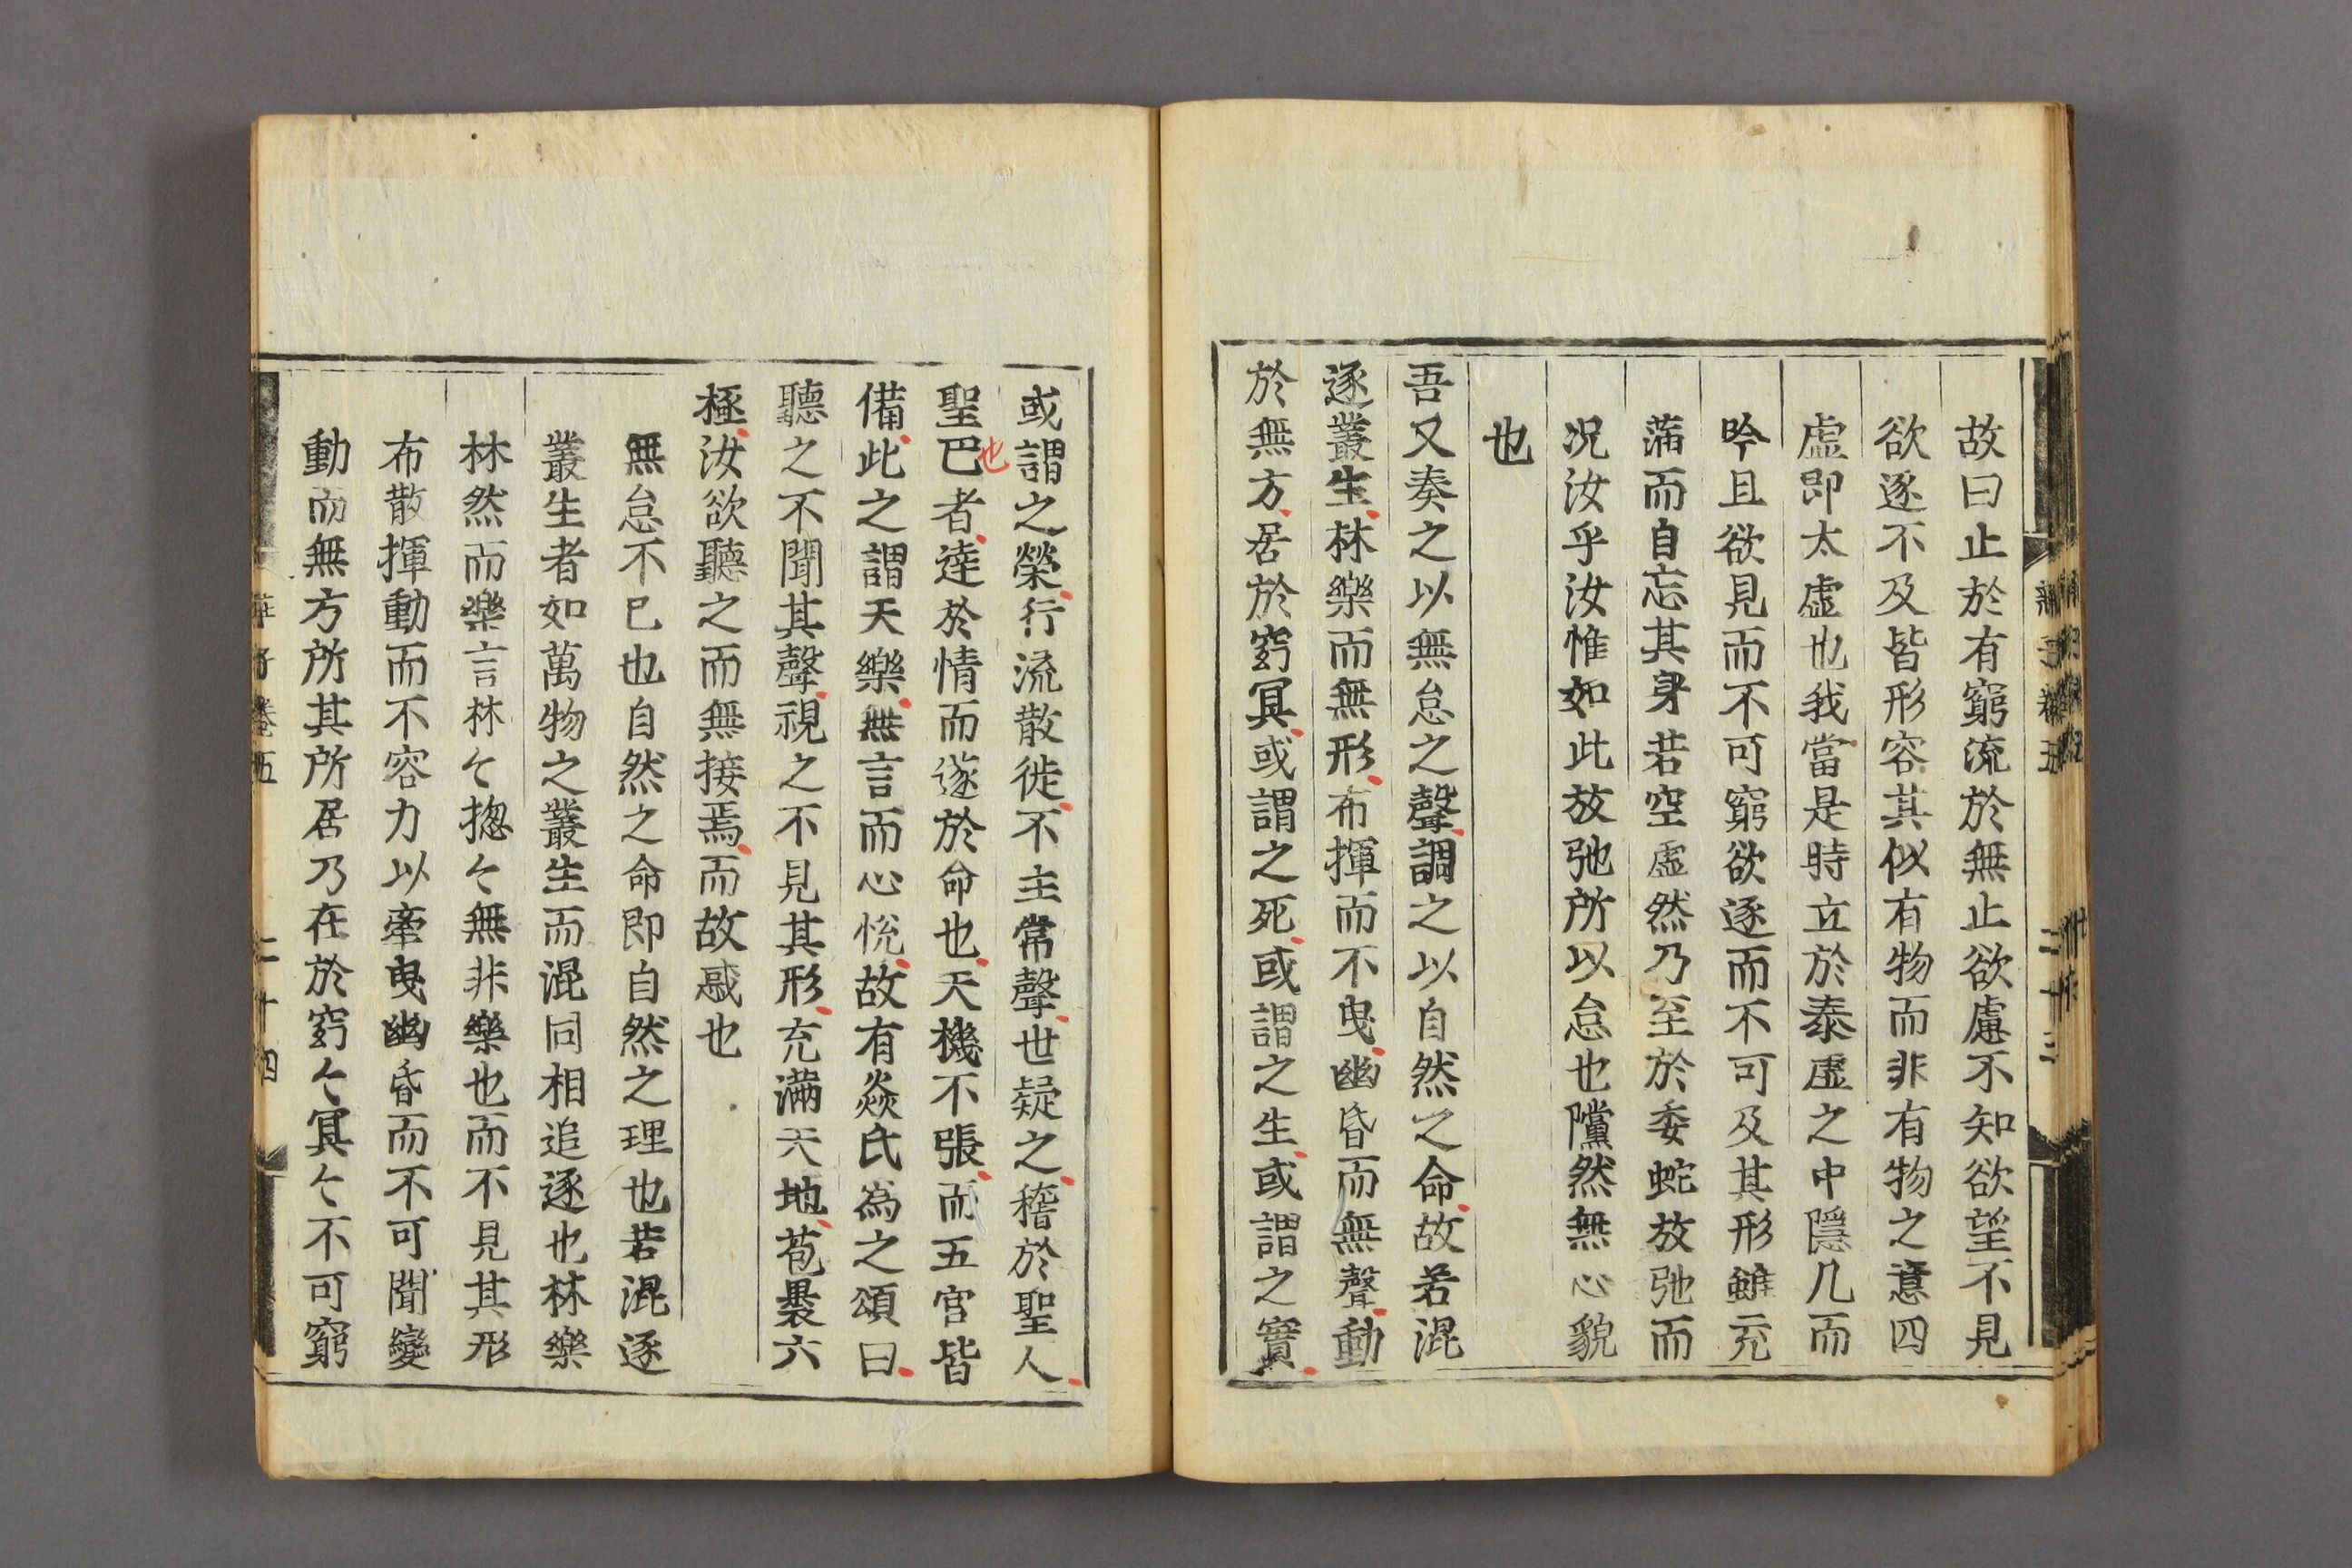 故曰止於有窮流於無止欲慮不知欲望不見
欲逐不及皆形容其似有物而非有物之意四
虛即太虛也我當是時立於泰虛之中隱几而
吟且欲見而不可窮欲逐而不可及其形雖充
滿而自忘其身若空虛然乃至於委蛇放弛而
况汝乎汝惟如此放弛所以怠也儻然無心貌
也
吾又奏之以無怠之聲調之以自然之命故若混
逐叢生林樂而無形布揮而不曳幽昏而無聲動
於無方居於窈冥或謂之死或謂之生或謂之實
或謂之榮行流散徙不主常聲世疑之稽於聖人
聖巴者達於情而遂於命也天機不張而五官皆
也
備此之謂天樂無言而心恱故有焱氏為之頌曰
聽之不聞其聲視之不見其形充滿天地苞裹六
極汝欲聽之而無接焉而故惑也
無怠不已也自然之命即自然之理也若混逐
叢生者如萬物之叢生而混同相追逐也林樂
林然而樂言林々揔々無非樂也而不見其形
布散揮動而不容力以牽曳幽昏而不可聞變
動而無方所其所居乃在於窈々冥々不可窮
莊子卷五 二十四